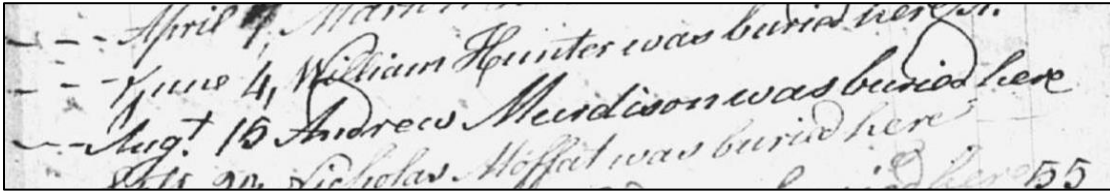 April 7,
June 4, William Hunter was buried here
Augt. 15 Andrew Murdison was buried here
Nicholas Moffat was buried here
here 55